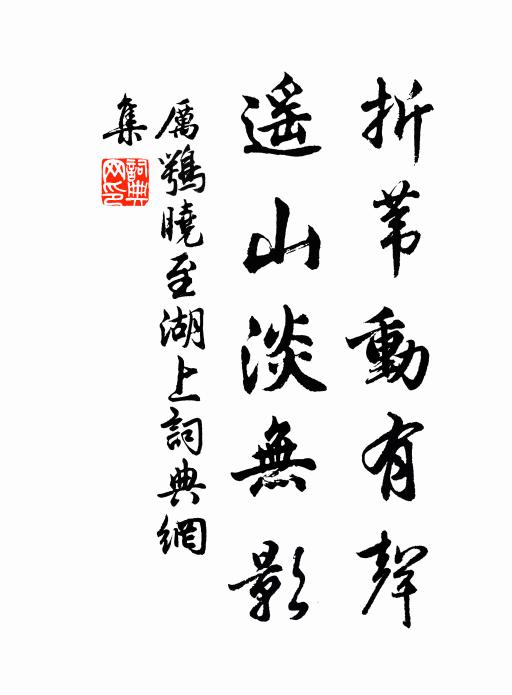 折葦動有聲
遥山淡無影
厲鶚曉至湖上詞典網
集
詞典網印